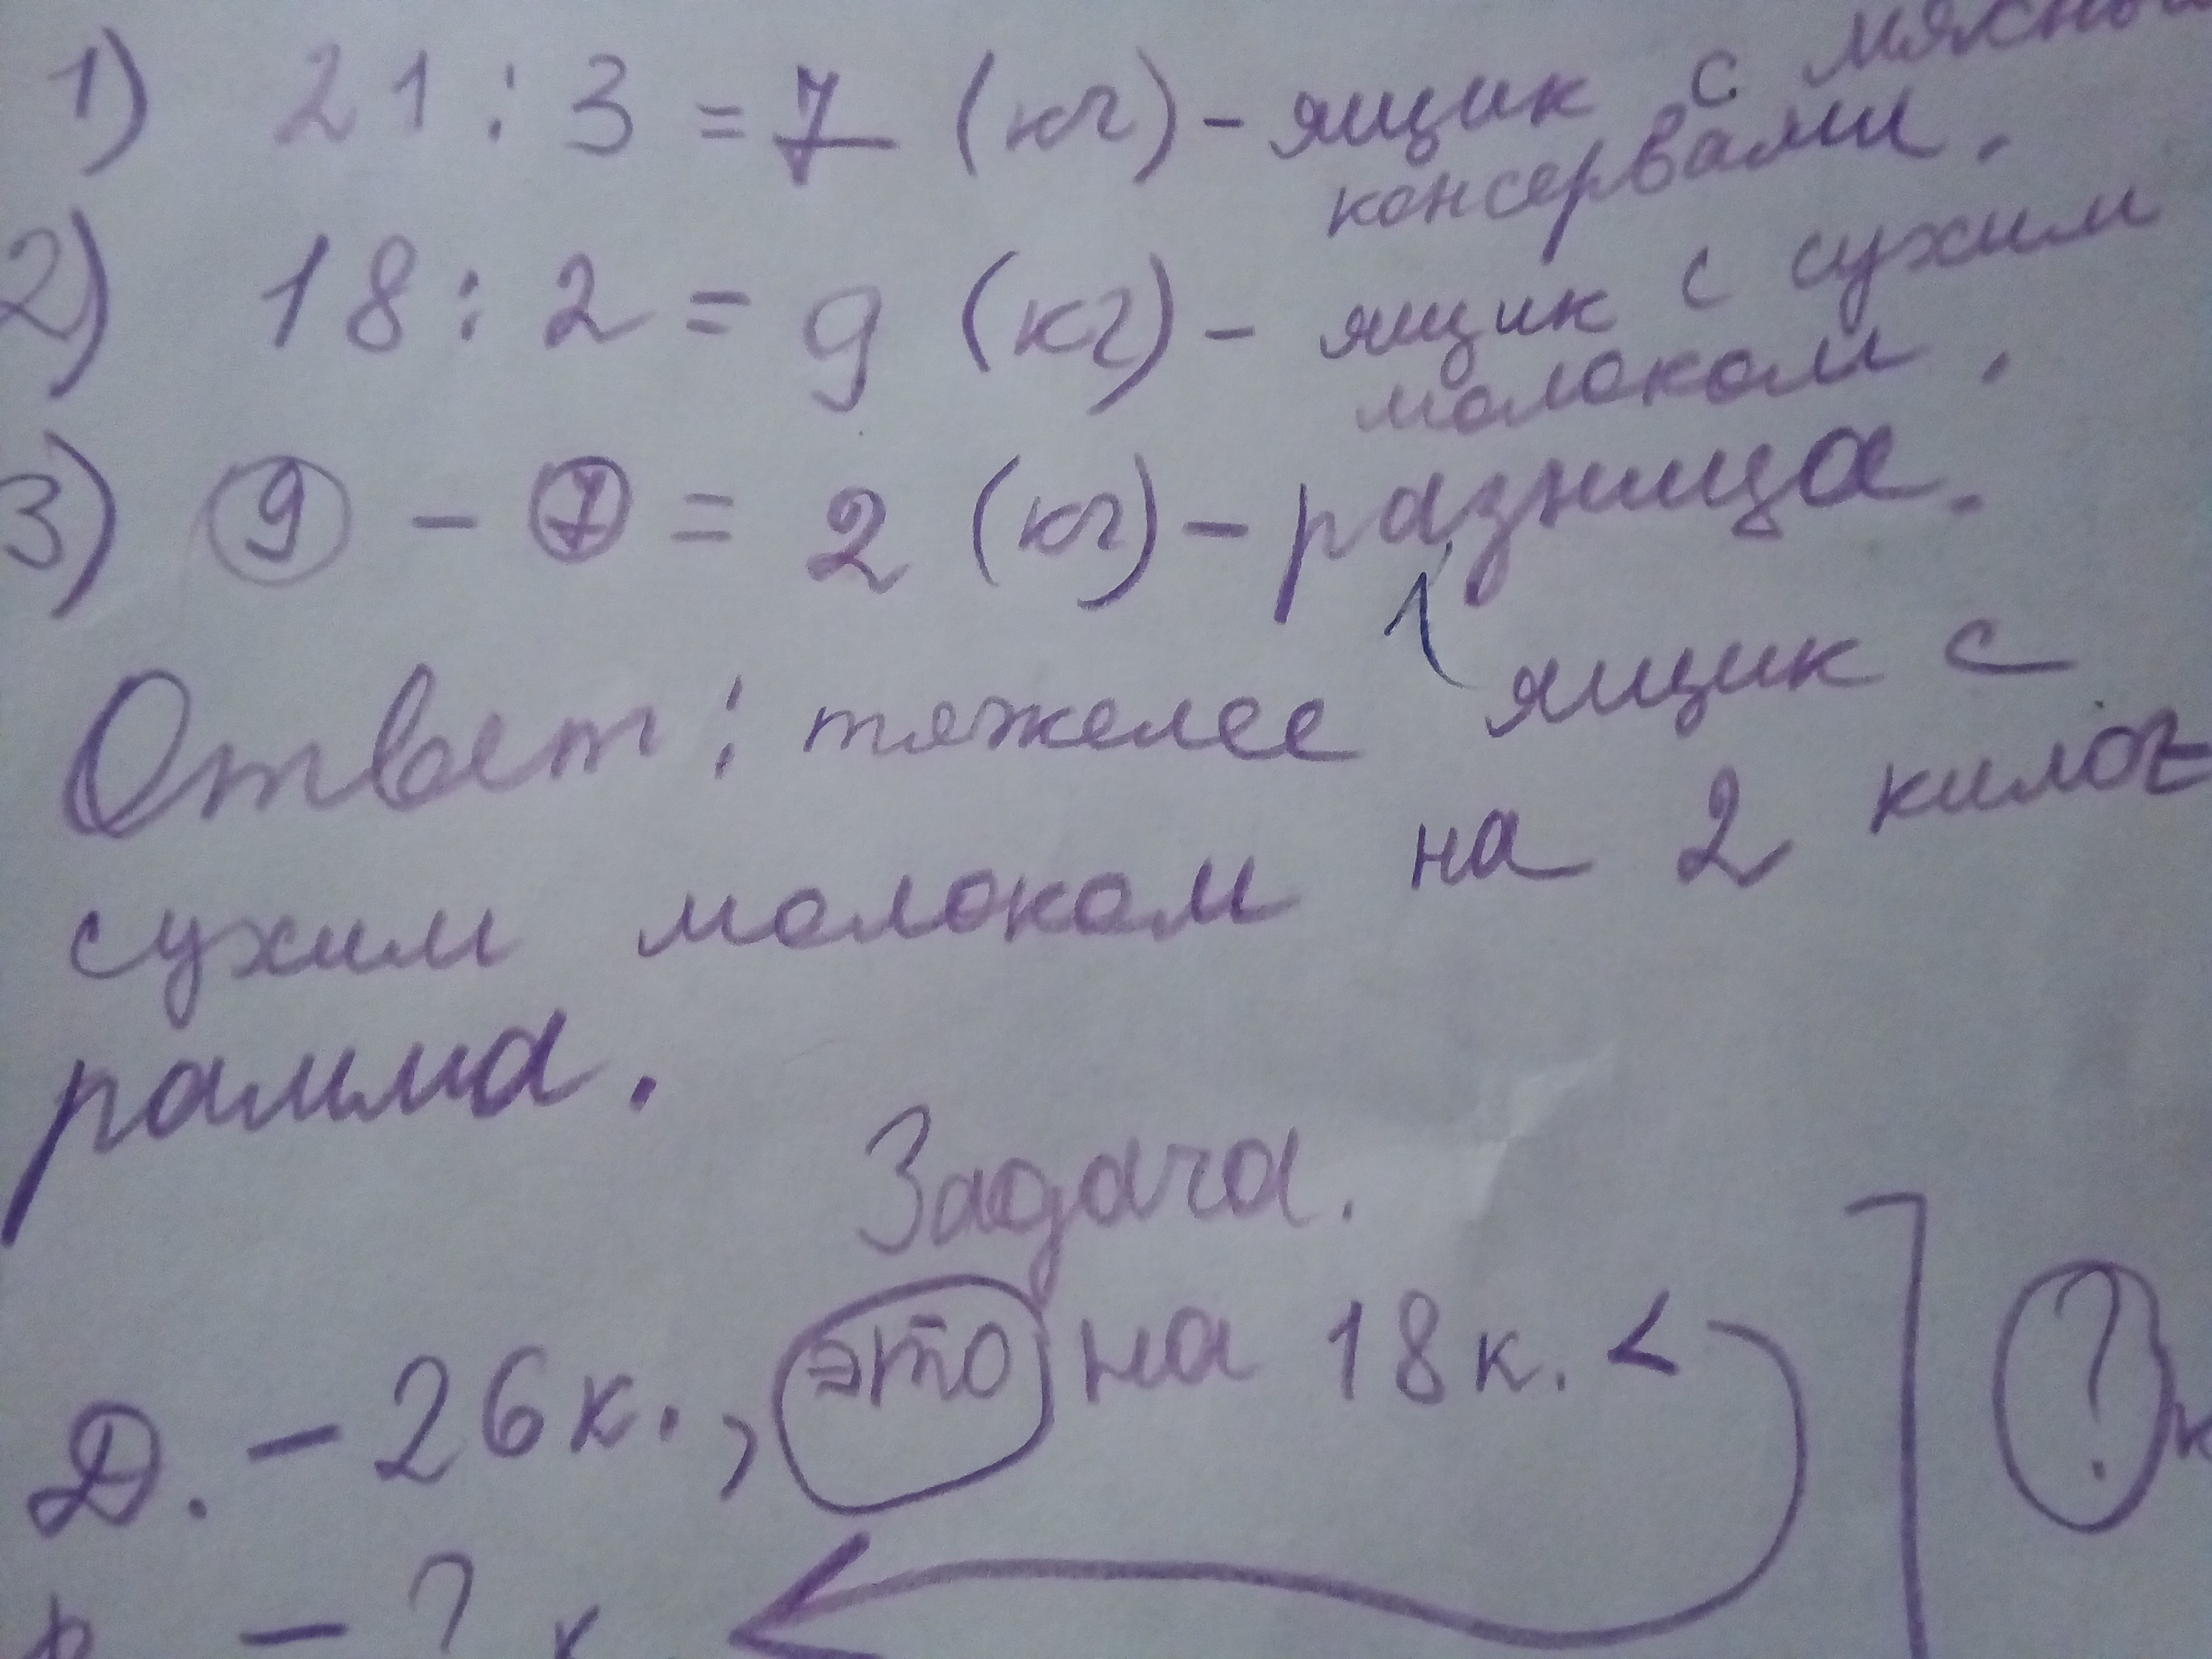 1) 21 : 3 = 7 (кг) - ящик с мясны
консервами.
2) 18 : 2 = 9 (кг) - ящик с сухим
молоком.
3) 9 - 7 = 2 (кг) - разница.
Ответ: тяжелее ящик с
сухим молоком на 2 килог
рамма.
Задача.
Д. - 26 к., это на 18 к. < ?
- ? к.